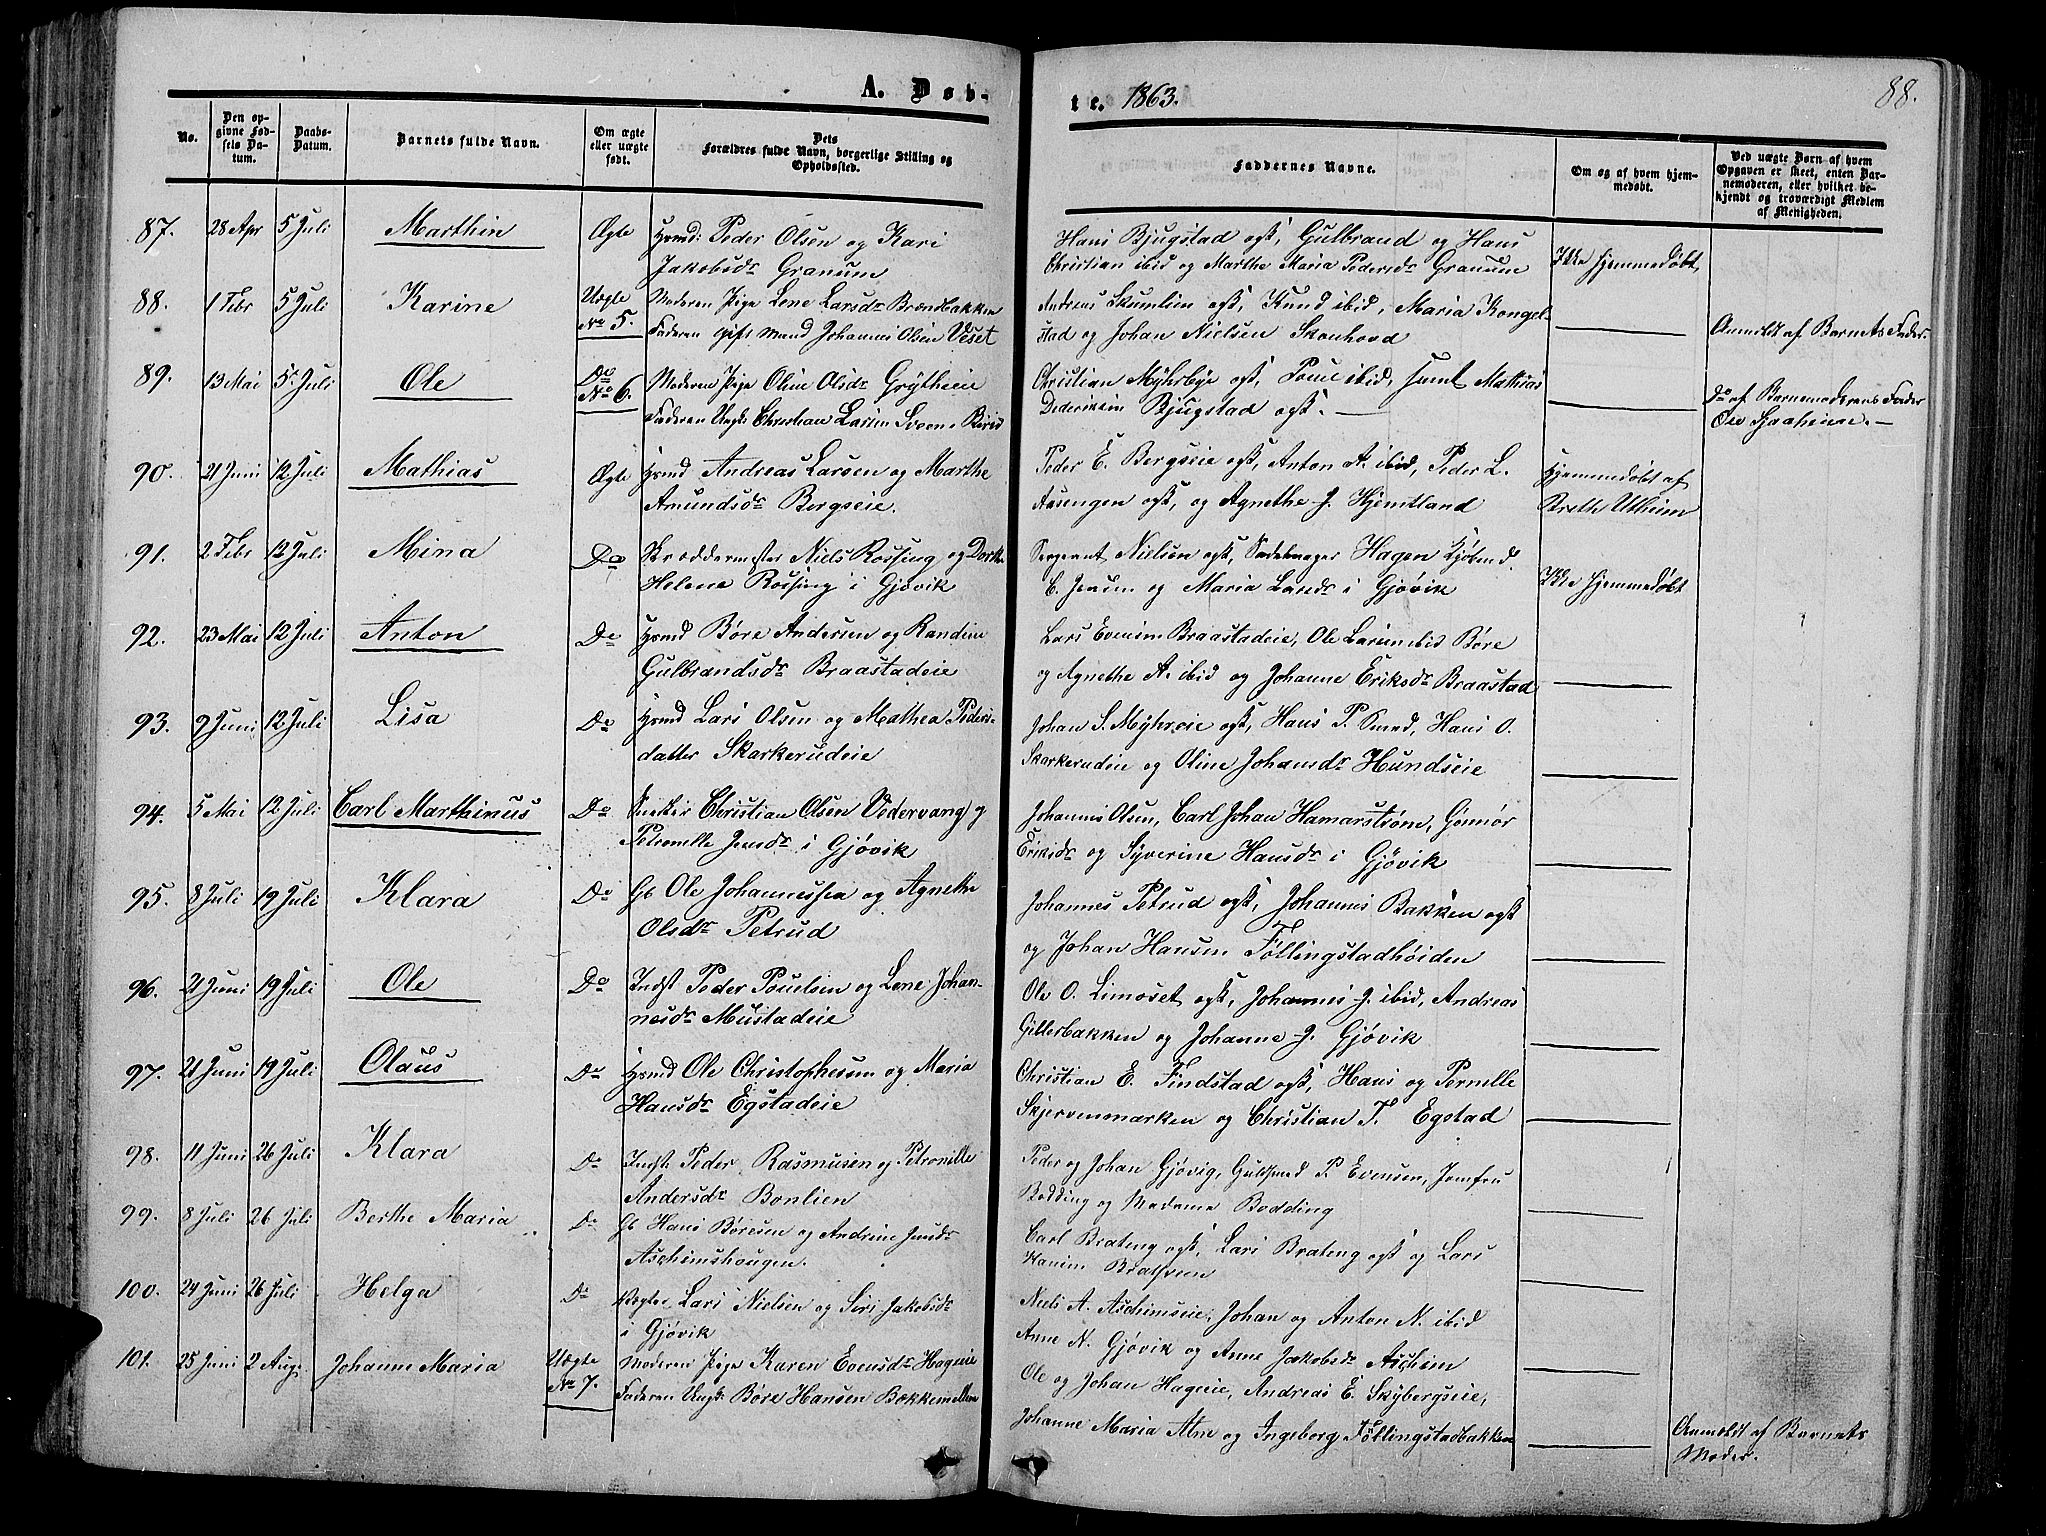 A. Døb-
te. 1863.
88.
No.
Den op-
givne Fød-
sels Da-
tum.
Daabs-
Datum.
Barnets fulde Navn.
Om ægte
eller uægte
født.
Dets
Forældres fulde Navn, borgerlige Stilling og
Opholdssted.
Faddernes Navne.
Om og af hvem hjem-
medøbt.
Ved uægte Børn af hvem
Opgaven er skeet, enten Bar-
nemoderen, eller hvilket be-
kjendt og troværdigt Medlem
af Menigheden.
87. 28 Apr 5 Juli Marthin Ægte Hsmd: Peder Olsen og Kari
Jakobsdr Granum
Hans Bjugstad ogsk, Gulbrand og Hans
Christian ibid og Marthe Maria Pedersdr Granum
Ikke hjemmedøbt
88. 1 Febr 5 Juli Karine Uægte
No 5.
Moderen Pige Lene Larsdr Brændbakken
Faderen gift Mand Johannes Olsen Veset
Andreas Skumlien ogsk, Knud ibid, Maria Kongel-
stad og Johan Nielsen Skonhovd
Anmeldt af Barnets Fader
89. 13 Mai 5 Juli Ole Do
No 6.
Moderen Pige Oline Olsdr Grytheie
Faderen Ungk: Christian Larsen Sveen i Biri
Christian Myhrbye ogsk, Poul ibid, samt Mathias
Dideriksen Bjugstad ogsk.
Do af Barnemoderens Fader
Ole
90. 21 Juni 12 Juli Mathias Ægte Hsmd Andreas Larsen og Marthe
Amundsdr Bergseie.
Peder E. Bergseie ogsk, Anton A. ibid, Peder L.
Aasengen ogsk, og Agnethe J. Hjemtland
Hjemmedøbt af
Berth Utheim
91. 2 Febr 12 Juli Mina Do Skræddermester Niels Rossing og Dorthe
Helene Rossing i Gjøvik
Sergeant Nielsen ogsk, Sadelmager Hagen Kjøbmd.
C. Jensen og Maria Larsdr i Gjøvik
Ikke hjemmedøbt
92. 23 Mai 12 Juli Anton Do Hsmd Børe Andersen og Randine
Gulbrandsdr Braastadeie
Lars Evensen Braastadeie, Ole Larsen ibid Børe
og Agnethe A. ibid og Johanne Eriksdr Braastad
93. 9 Juni 12 Juli Lisa Do Hsmd Lars Olsen og Mathea Peders-
datter Skarkerudeie
Johan S. Myhreie ogsk, Hans P. Smed, Hans O.
Skarkerudeie og Oline Johansdr Hundseie
94. 5 Mai 12 Juli Carl Marthinus Do Snekker Christian Olsen Vedervang og
Petronelle Jensdr i Gjøvik
Johannes Olsen, Carl Johan Hamarstrøm, Gønnør
Eriksdr og Syverine Hansdr i Gjøvik
95. 8 Juli 19 Juli Klara Do Gb Ole Johannessen og Agnethe
Olsdr Petrud
Johannes Petrud ogsk, Johannes Bakken ogsk
og Johan Hansen Føllingstadhøiden
96. 21 Juni 19 Juli Ole Do Indst Peder Pouelsen og Lene Johan-
nesdr Mustadeie
Ole O. Limoset ogsk, Johannes J. ibid, Andreas
Gillerbakken og Johanne J. Gjøvik
97. 21 Juni 19 Juli Olaus Do Hsmd Ole Christophersen og Maria
Hansdr Egstadeie
Christian E. Findstad ogsk, Hans og Pernille
Skjervenmarken og Christian T. Egstad
98. 11 Juni 26 Juli Klara Do Indst: Peder Rasmusen og Petronille
Andersdr Bonlien
Peder og Johan Gjøvig, Guldsmed P. Evensen, Jomfru
Bodding og Madame Bodding
99. 8 Juli 26 Juli Berthe Maria Do Gb Hans Børesen og Andrine Jensdr
Aschimshaugen.
Carl Brateng ogsk, Lars Brateng ogsk og Lars
100. 24 Juni 26 Juli Helga Do Lars Nielsen og Siri Jakobsdr
i Gjøvik
Niels A. Aschimseie, Johan og Anton N. ibid
Anne N. Gjøvik og Anne Jakobsdr Aschim
101. 25 Juni 2 Aug. Johanne Maria Uægte
No 7.
Moderen Pige Karen Evensdr Hageeie
Faderen Ungk: Børe Hansen Bækkemellem
Ole og Johan Hageeie, Andreas E. Skybergseie,
Johanne Maria Alm og Ingeborg Føllingstadbakken
Anmeldt af Barnets
Moder.